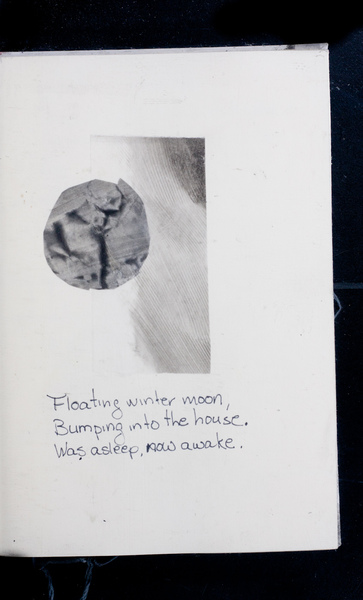 Floating winter moon,
Bumping into the house.
Was asleep, now awake.